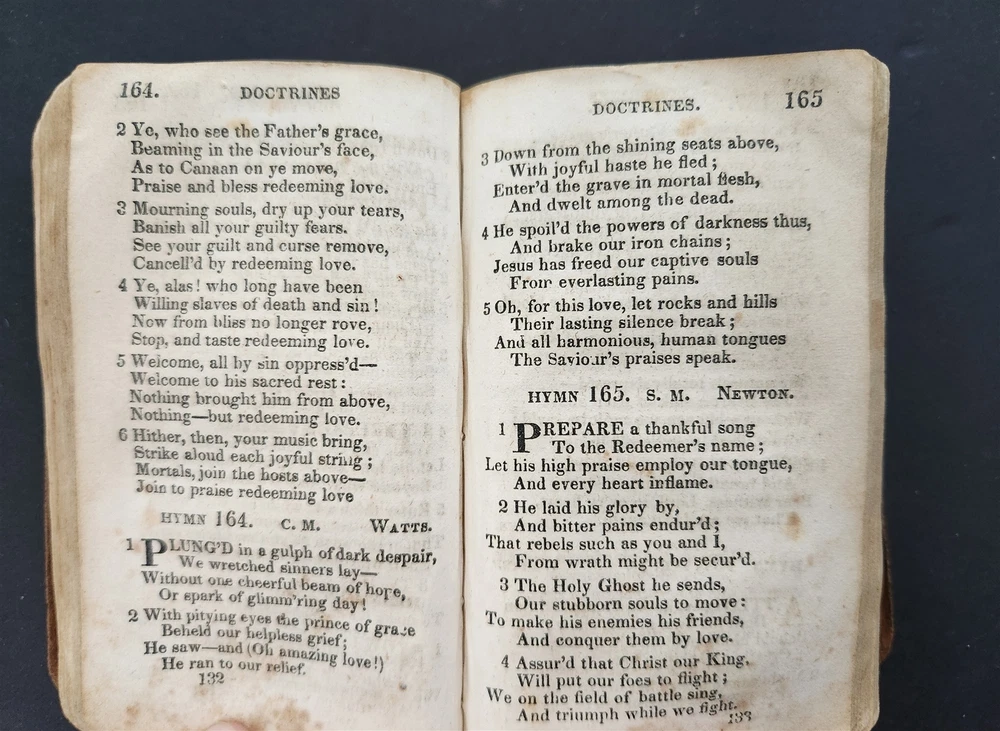 164.
DOCTRINES
2 Ye, who see the Father's grace,
Beaming in the Saviour's face,
As to Canaan on ye move,
Praise and bless redeeming love.
3 Mourning souls, dry up your tears,
Banish all your guilty fears.
See your guilt and curse remove,
Cancell'd by redeeming love.
4 Ye, alas! who long have been
Willing slaves of death and sin!
Now from bliss no longer rove,
Stop, and taste redeeming love.
5 Welcome, all by sin oppress'd—
Welcome to his sacred rest:
Nothing brought him from above,
Nothing—but redeeming love.
6 Hither, then, your music bring,
Strike aloud each joyful string;
Mortals, join the hosts above—
Join to praise redeeming love
HYMN 164. C. M. WATTS.
1 PLUNG'D in a gulph of dark despair,
We wretched sinners lay—
Without one cheerful beam of hope,
Or spark of glimm'ring day!
2 With pitying eyes the prince of grace
Beheld our helpless grief;
He saw—and (Oh amazing love!)
He ran to our relief.
132
DOCTRINES.
165
3 Down from the shining seats above,
With joyful haste he fled;
Enter'd the grave in mortal flesh,
And dwelt among the dead.
4 He spoil'd the powers of darkness thus,
And brake our iron chains;
Jesus has freed our captive souls
From everlasting pains.
5 Oh, for this love, let rocks and hills
Their lasting silence break;
And all harmonious, human tongues
The Saviour's praises speak.
HYMN 165. S. M. NEWTON.
1 PREPARE a thankful song
To the Redeemer's name;
Let his high praise employ our tongue,
And every heart inflame.
2 He laid his glory by,
And bitter pains endur'd;
That rebels such as you and I,
From wrath might be secur'd.
3 The Holy Ghost he sends,
Our stubborn souls to move:
To make his enemies his friends,
And conquer them by love.
4 Assur'd that Christ our King,
Will put our foes to flight;
We on the field of battle sing,
And triumph while we fight.
133